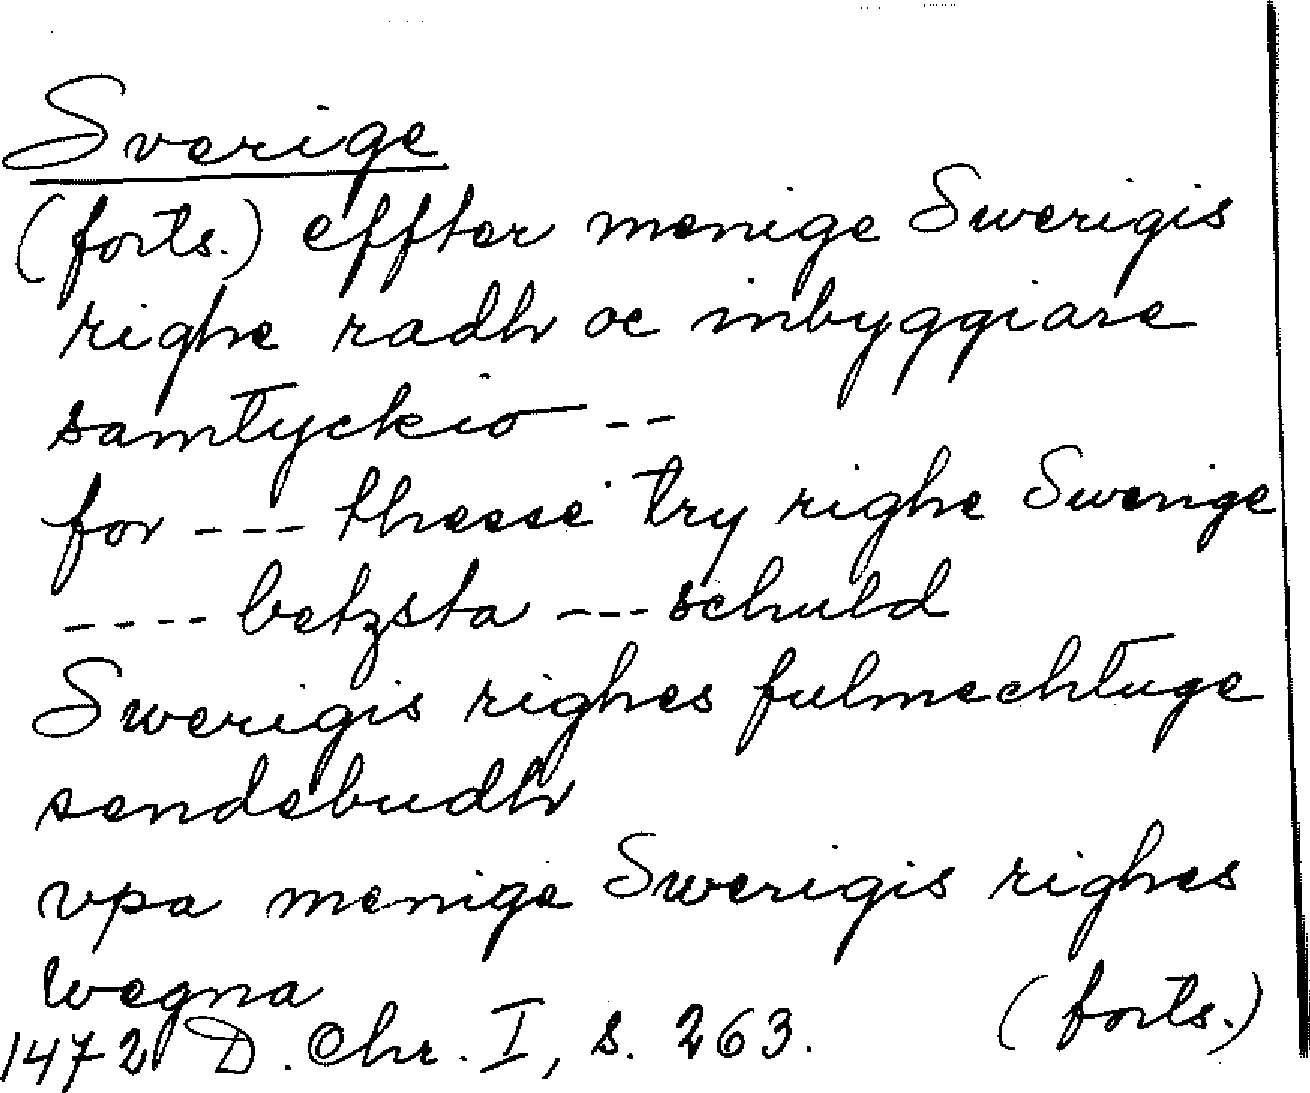 Sverige
(forts.) effter menige Swerigis
righe radh oc inbyggiare
samtyckio --
for --- thesse try righe Swerige
---- betzsta --- schuld
Swerigis righes fulmechtuge
sendebudh
vpa menige Swerigis righes
wegna (forts.)
1472 D. Chr. I, s. 263.